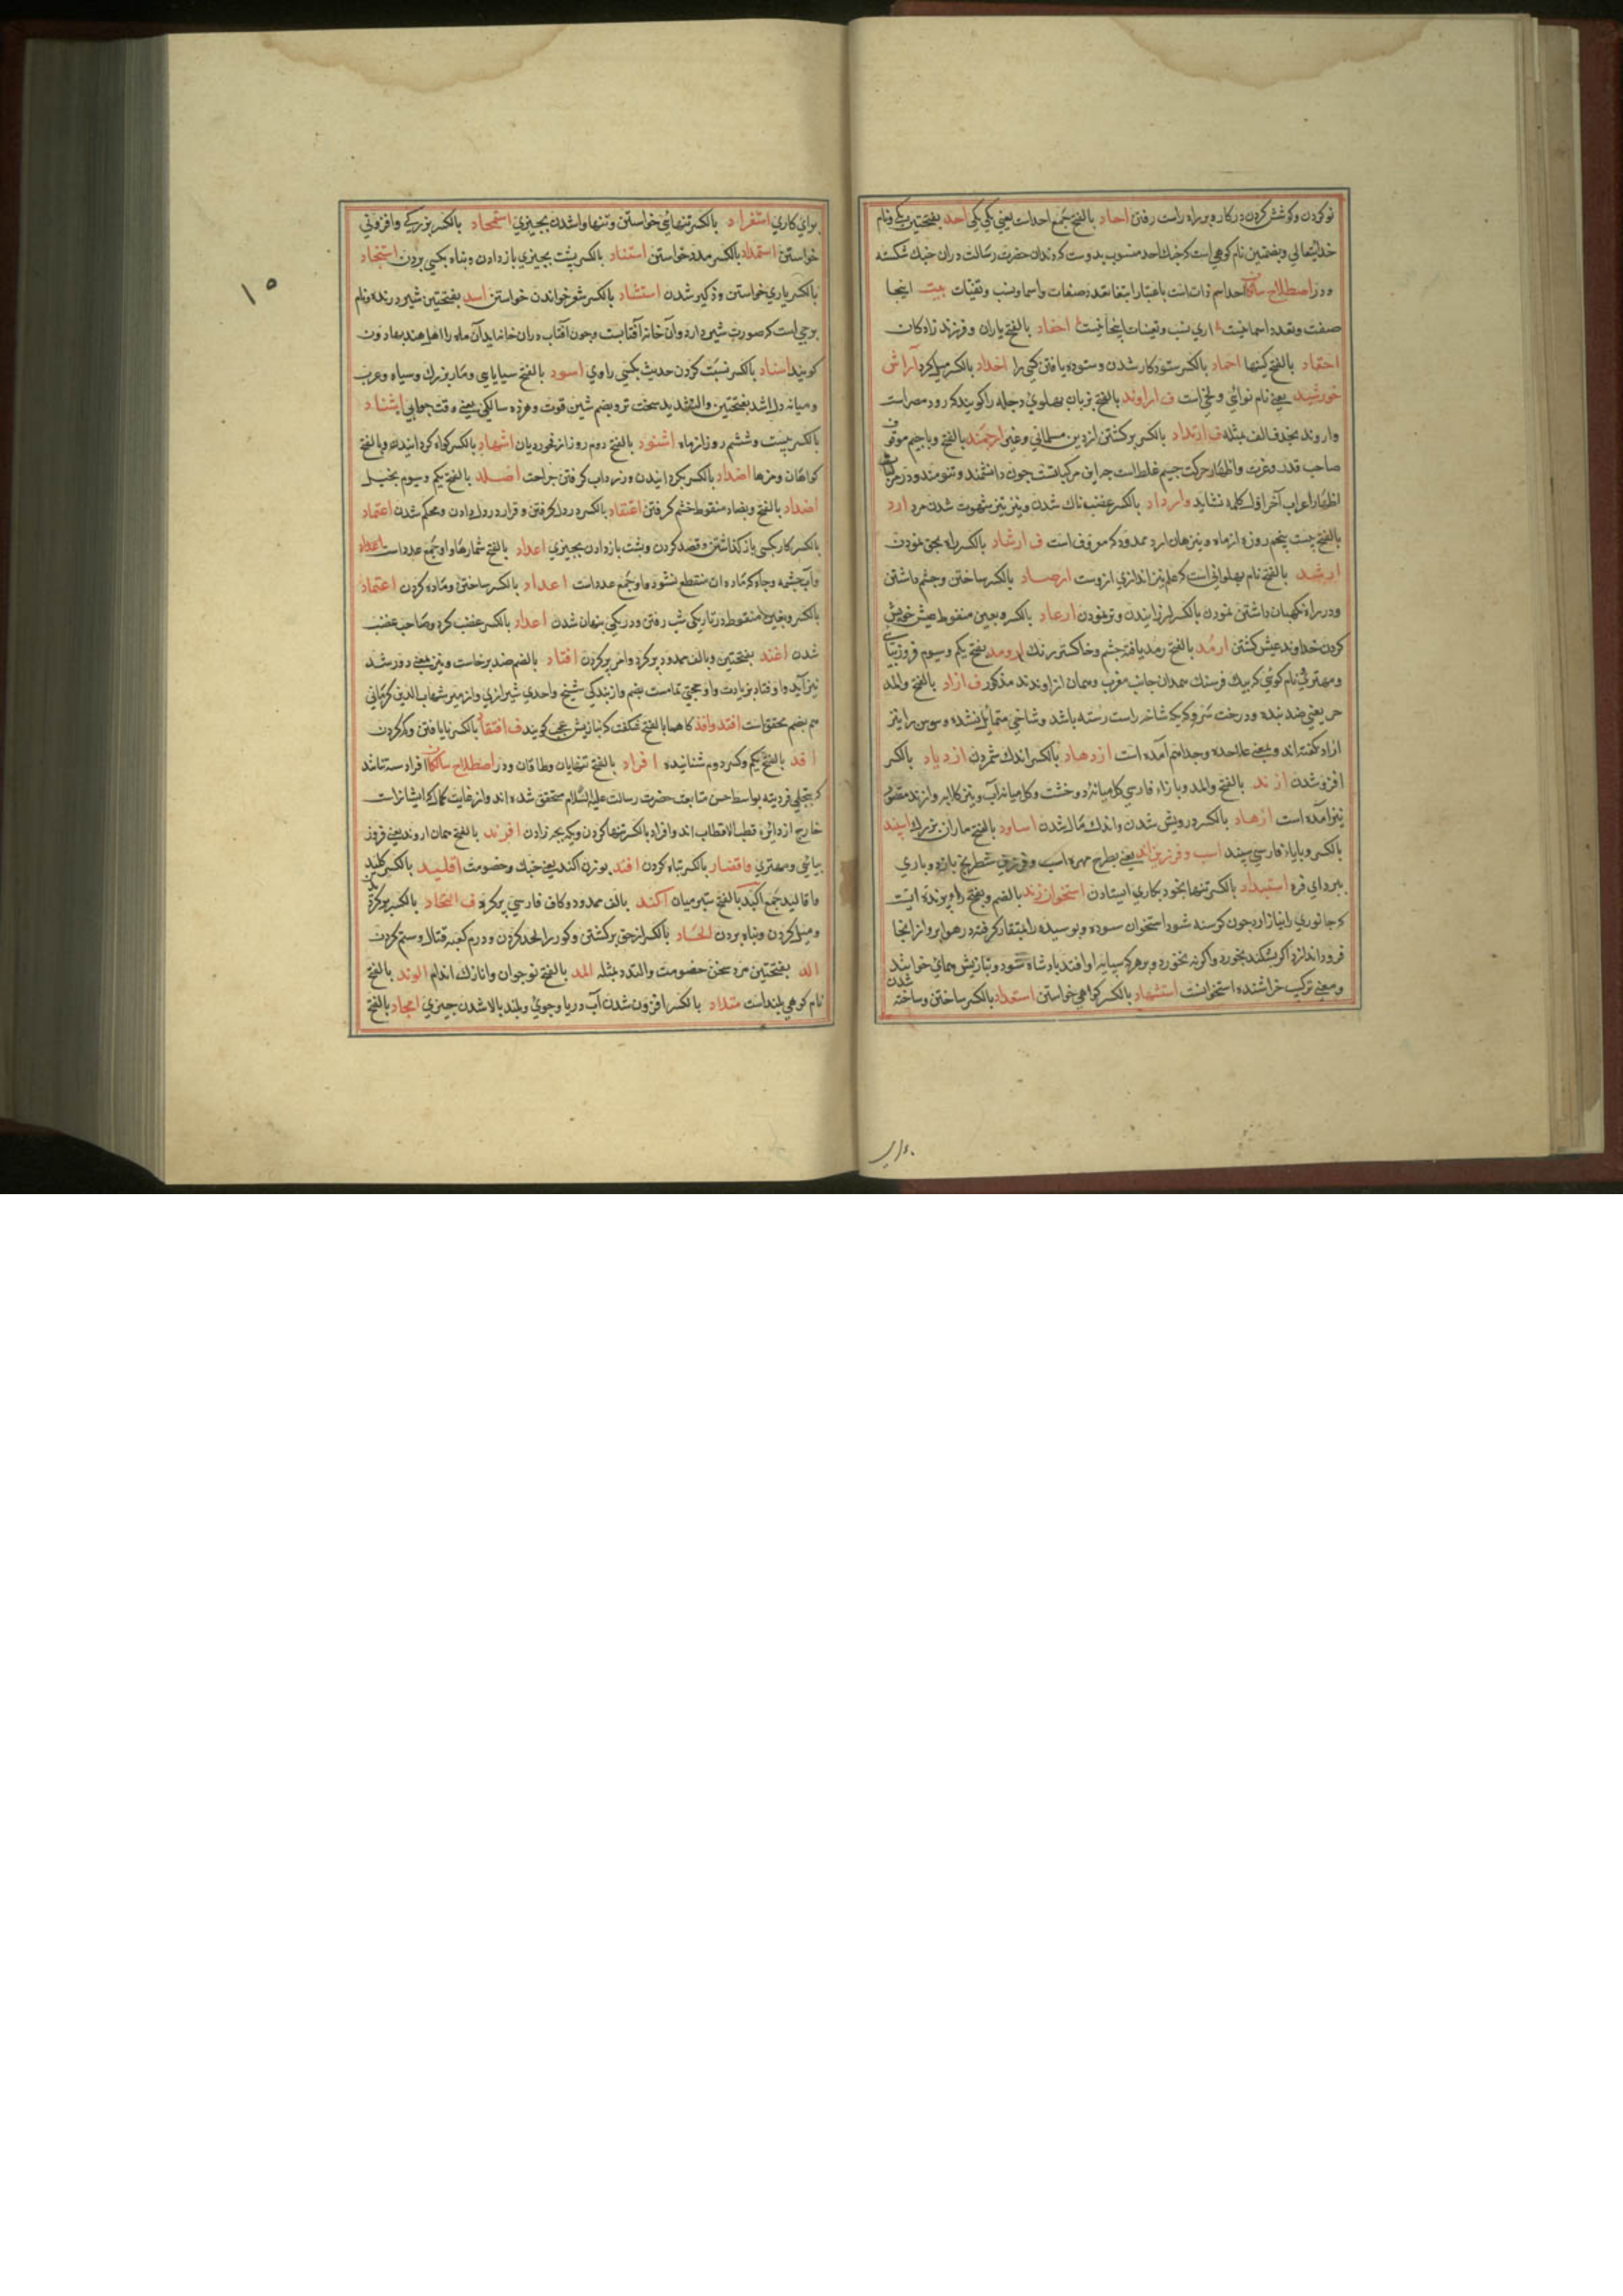 نو کردن و کوشش کردن در کار و براه راست رفتن احاد بالفتح جمع احد است یعنی یکی یکی احد بفتحتین یکی و نام
خدایتعالی و بضمتین نام کوهی است که جنك احد منسوب بدوست که دندان حضرت رسالت دران جنك شکسته
و در اصطلاح احد اسم ذات است باعتبار انتفا تعدد صفات و اسما و نسب و تعینات بیت اینجا
صفت و تعدد اسما نیست اری نسب و تعینات اینجا نیست احفاد بالفتح یاران و فرزند زادکان
احقاد بالفتح کینها احماد بالکسر ستوده کار شدن و ستوده یافتن کسی را اخداد بالکسر میل کرد آرایش
خورشید یعنی نام نوائی و لحنی است ف اراوند بالفتح بزبان پهلوی دجله را کویند که رود مصر است
و اروند بحذف الف مثله ف ارتداد بالکسر برکشتن از دین مسلمانی و غیر ارجمند بالفتح و با جیم موقوف
صاحب قدر و عزت و اظهار حرکت جیم غلط است چون دانشمند و تنومند و در
اظهار اعراب آخر اول کلمه نشاید و ارداد بالکسر غضب ناك شدن و نیز تیز شهوت شدن مرد ارد
بالفتح بیست پنجم روزه از ماه و نیز همان ارد ممدود که موقوف است ف ارشاد بالکسر راه بحق نمودن
ارشد بالفتح نام پهلوانی است که علم تیر اندازی ازوست ارصاد بالکسر ساختن و چشم داشتن
و در راه نکهبان داشتن نمودن بالکسر لرزانیدن و تر نمودن ارعاد بالکسر و بعین منقوط عیش خویش
کردن خداوند عیش کشتن ارمد بالفتح رمد یافته چشم و خاکستر رنك ارومد بفتح یکم و سیوم فروزیبائی
و مهتری نام کوهی که بیك فرسنك همدان جانب مغرب و همان از اوند مذکور ف ازاد بالفتح والمد
حر یعنی ضد بنده و درخت سرو که یك شاخه راست رسته باشد و شاخی متمایل نشده و سوسن را نیز
ازاد کفته اند و بمعنی علاحده و جدا هم آمده است ازدهاد بالکسر اندك شمردن ازدیاد بالکسر
افزون شدن ازند بالفتح والمد و با زاء فارسی کل میانه دو خشت و کل میانه آب و نیز کلابه و ازند مقصور
نیز آمده است ازهاد بالکسر درویش شدن و اندك مال شدن اساود بالفتح ماران بزرك اسپند
بالکسر و با باء فارسی سپند اسب و فرزین اند یعنی بطرح مهره اسب و فرزین شطرنج بازد و بازی
ببرد ای فره استبداد بالکسر تنها بخود بکاری ایستادن استخوان زند بالضم و بفتح راء پرنده ایست
که جانوری را نیازارد چون کرسنه شود استخوان سوده و بوسیده را بمنقار کرفته در هوا برد و از انجا
فرود اندازد اکر بشکند بخورد و اکر نه نخورد و بر هرکه سایه او افتد بادشاه شود و بتازیش همای خوانند
و معنی ترکیب خراشنده استخوانست استشهاد بالکسر کواهی خواستن استعداد بالکسر ساختن و ساخته شدن
برای کاری استفراد بالکسر تنهائی خواستن و تنها واشدن بچیزی استمجاد بالکسر بزرکی و افزونی
خواستن استمداد بالکسر مدد خواستن استناد بالکسر پشت بچیزی باز دادن و پناه بکسی بردن استنجاد
بالکسر یاری خواستن و ذکیر شدن استنشاد بالکسر شعر خواندن خواستن اسد بفتحتین شیر درنده و نام
برجی است که صورت شیر دارد و آن خانه آفتابست و چون آفتاب دران خانه اید آن ماه را اهل هند بهادون
کویند اسناد بالکسر نسبت کردن حدیث بکسی راوی اسود بالفتح سیاه و مار بزرك و سیاه و عرب
و میانه دل اشد بفتحتین والتشدید سخت تر و بضم شین قوت و هژده سالکی یعنی وقت جوانی اشناد
بالکسر بیست و ششم روز از ماه اشنود بالفتح دوم روز از فوردیان اشهاد بالکسر کواه کردانیدن و بالفتح
کواهان و مزها اضداد بالکسر بکردانیدن و زرداب کرفتن جراحت اصلد بالفتح یکم و سیوم بخیل
اضداد بالفتح و بضاد منقوط خشم کرفتن اعتقاد بالکسر در دل کرفتن و قرار در دل دادن و محکم شدن اعتماد
بالکسر کار بکسی باز کذاشتن و قصد کردن و پشت باز دادن بچیزی اعداد بالفتح شمارها و او جمع عدد است اعداد
و آب چشمه و چاه که ماده ان منقطع نشود و او جمع عدد است اعداد بالکسر ساختن و ماده کردن اعتماد
بالکسر و بغین منقوط در تاریکی شب رفتن و در یکی پنهان شدن اعداد بالکسر غضب کرد و صاحب غضب
شدن اغند بفتحتین و بالف ممدوده پر کرد و امر پر کردن افتاد بالضم ضد برخاست و نیز بمعنی دور شد
نیز آید و اوفتاد بزیادت واو حجتی تمامست بضم و از بندکی شیخ واحدی شیرازی و از میر شهاب الدین کرمانی
هم بضم محقق است افتد وافد کاهما بالفتح شکفت که بتازیش عجب کویند ف افتقاد بالکسر نایافتن و کم کردن
افد بالفتح یکم و کسر دوم شتابنده افراد بالفتح تنهایان و طاقان و در اصطلاح افراد سه تن اند
که بتجلی فردیته بواسطه حسن متابعت حضرت رسالت علیه السلام متحقق شده اند و از غایت کمال که ایشانراست
خارج از دائره قطب الاقطاب اند و افراد بالکسر تنها کردن و یکه بچه زادن افرند بالفتح همان اروند یعنی فروز
بیائی و مهتری وافساد بالکسر تباه کردن افند بوزن اکند یعنی جنك و خصومت اقلید بالکسر کلید
و اقالید جمع اکبد بالفتح ستبر میان آکند بالف ممدوده و کاف فارسی پر کرد ف التحاد بالکسر بر کردن
و میل کردن و پناه بردن الحاد بالکسر از حق برکشتن و کور را لحد کردن و در حرم کعبه قتال و ستم کردن
الد بفتحتین مرد سخت خصومت والتدد مثله املد بالفتح نوجوان و نازك اندام الوند بالفتح
نام کوهی بلند است متداد بالکسر افزون شدن آب دریا و جوی و بلند بالا شدن چیزی امجاد بالفتح
۱۵